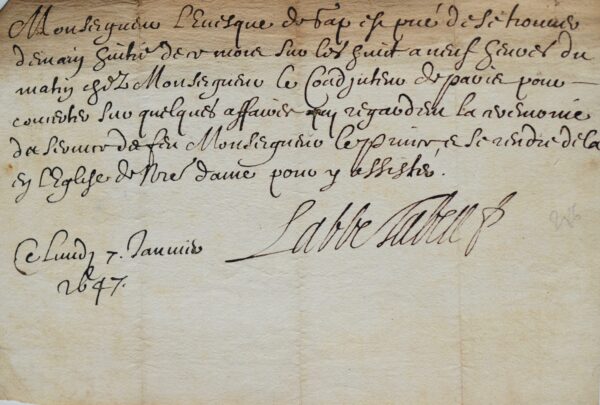 Monseigneur l'Evesque de Gap est prié de se trouver
demain huitie de ce mois sur les huit a neuf heures du
matin chez Monseigneur le Coadjuteur de paris pour
concerter sur quelques affaires qui regardent la ceremonie
du service de feu Monseigneur le prince et se rendre de la
en l'Eglise de Nre dame pour y assister.
Ce Lundj 7. Januier
1647.
Labbe